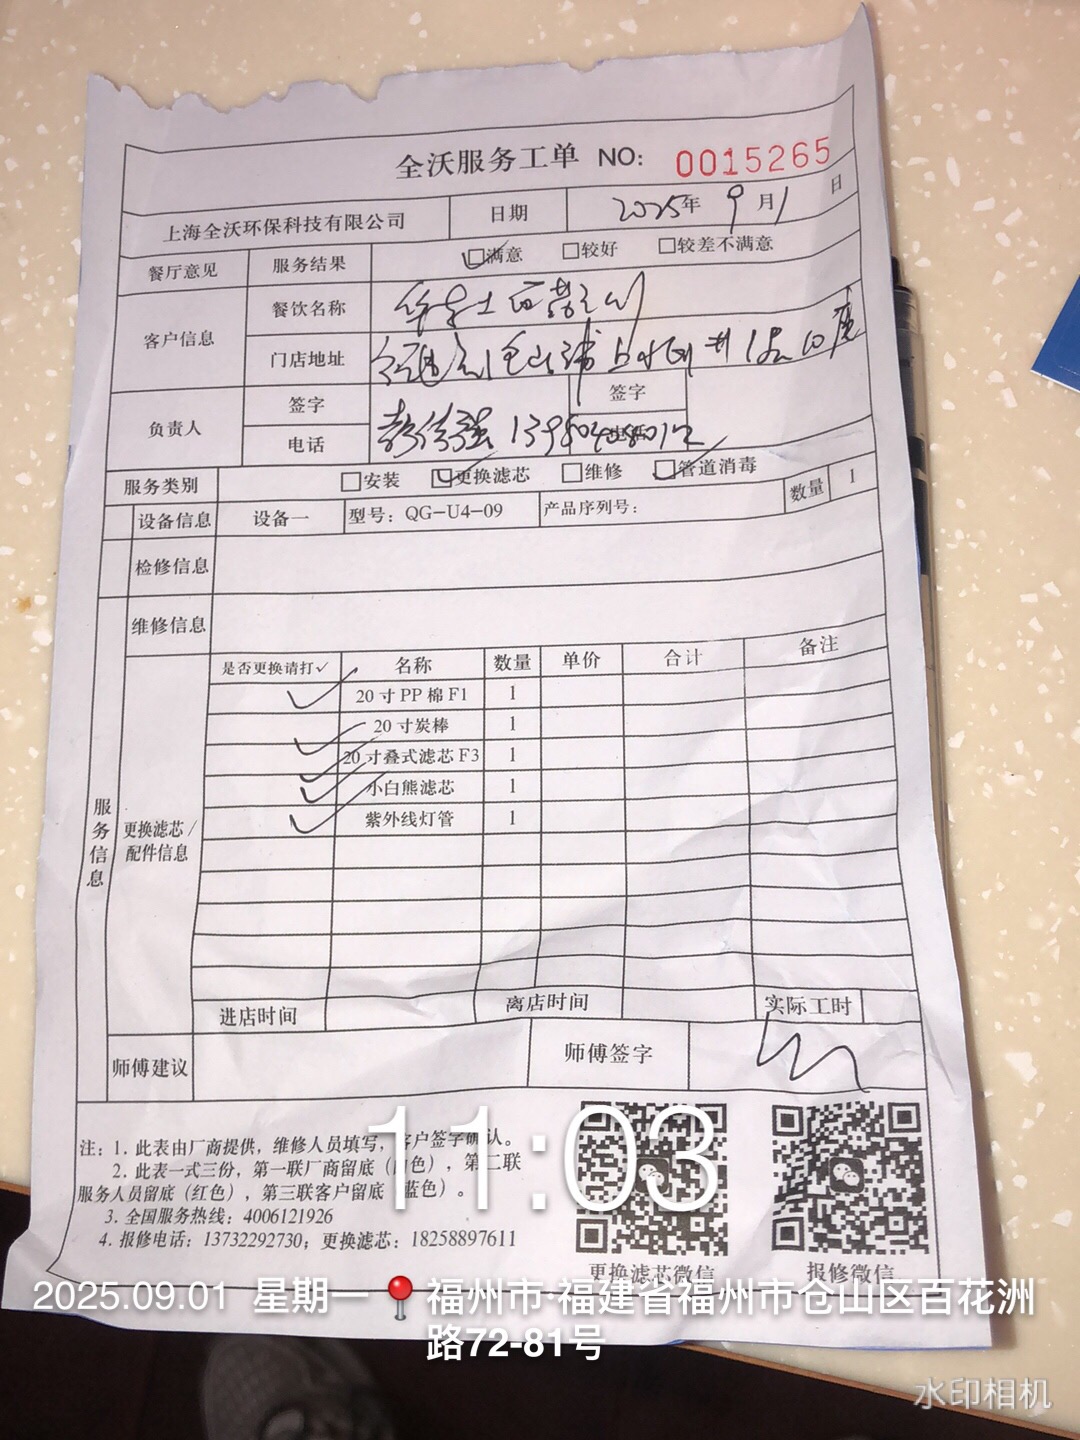 全沃服务工单 NO: 0015265
上海全沃环保科技有限公司 日期 2025年 9月1日
餐厅意见 服务结果 □满意 □较好 □较差不满意
客户信息 餐饮名称
门店地址
负责人 签字 签字
电话
服务类别 □安装 □更换滤芯 □维修 □管道消毒
设备信息 设备一 型号：QG-U4-09 产品序列号： 数量 1
检修信息
维修信息
服务信息
更换滤芯/
配件信息
是否更换请打✓ 名称 数量 单价 合计 备注
✓ 20寸PP棉F1 1
✓ 20寸炭棒 1
✓ 20寸叠式滤芯F3 1
✓ 小白熊滤芯 1
✓ 紫外线灯管 1
进店时间 离店时间 实际工时
师傅建议 师傅签字
注：1. 此表由厂商提供，维修人员填写，客户签字确认。
2. 此表一式三份，第一联厂商留底（白色），第二联
服务人员留底（红色），第三联客户留底（蓝色）。
3. 全国服务热线：4006121926
4. 报修电话：13732292730；更换滤芯：18258897611
更换滤芯微信 报修微信
11:03
2025.09.01 星期一 福州市·福建省福州市仓山区百花洲
路72-81号
水印相机